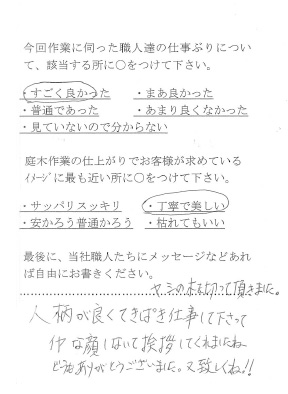 今回作業に伺った職人達の仕事ぶりについ
て、該当する所に○をつけて下さい。
・すごく良かった ・まあ良かった
・普通であった ・あまり良くなかった
・見ていないので分からない
庭木作業の仕上がりでお客様が求めている
ｲﾒｰｼﾞに最も近い所に○をつけて下さい。
・サッパリスッキリ ・丁寧で美しい
・安かろう普通かろう ・枯れてもいい
最後に、当社職人たちにメッセージなどあれ
ば自由にお書きください。
ヤシの木を切って頂きました。
人柄が良くてきぱき仕事して下さって
イヤな顔しないで挨拶してくれましたね
どうもありがとうございました。又致しくね!!